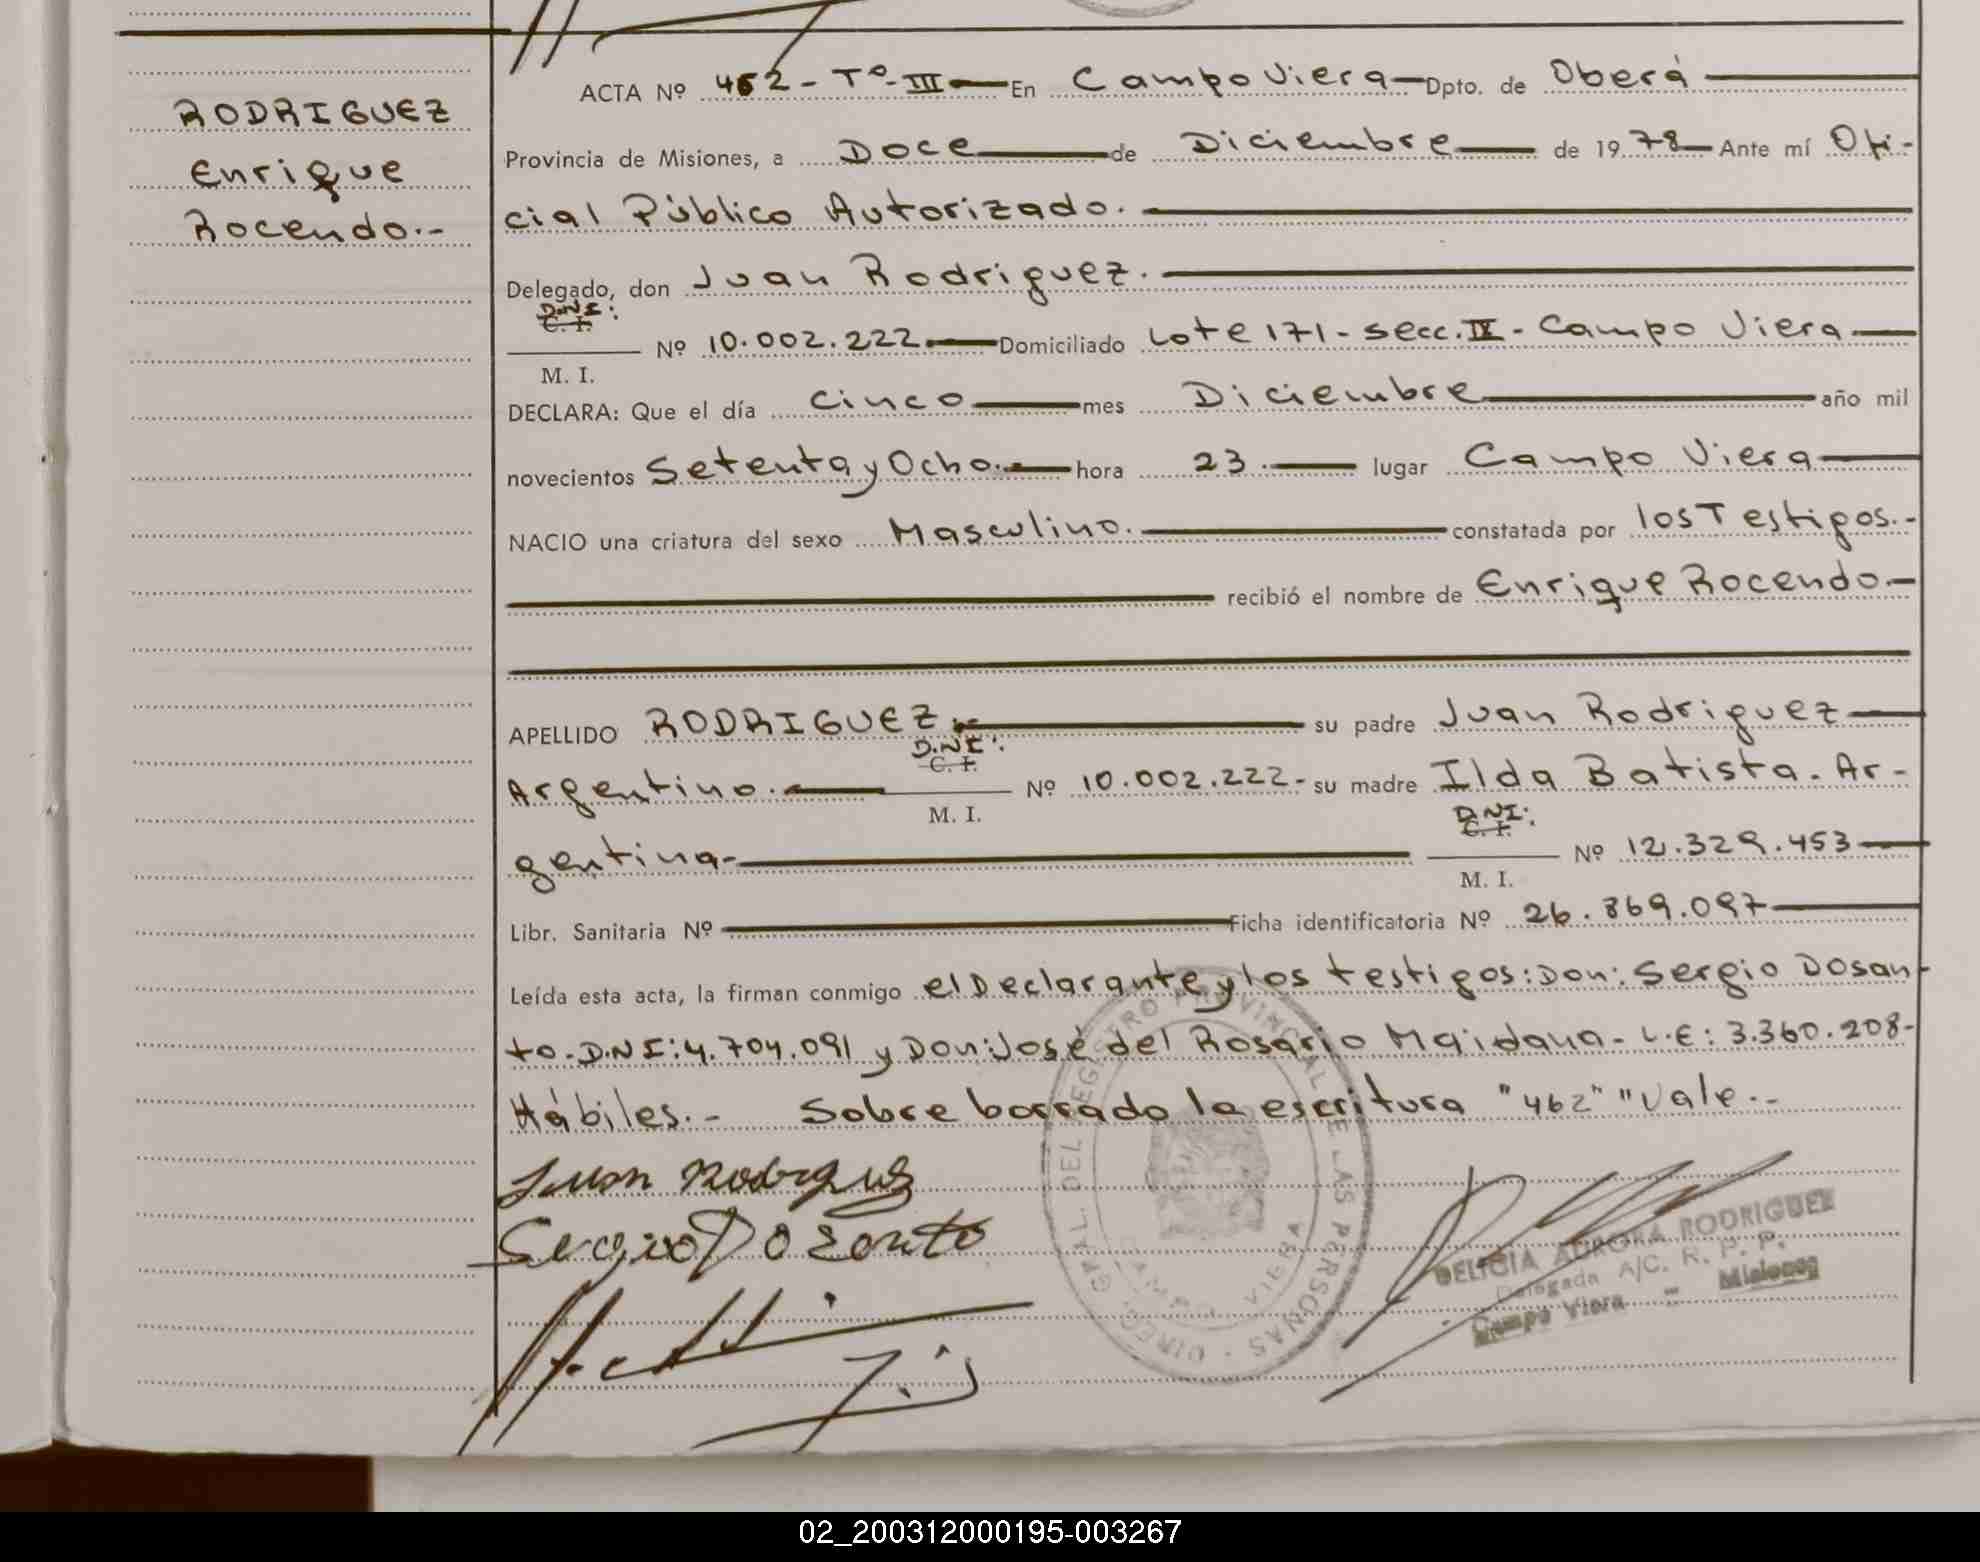 RODRIGUEZ
Enrique
Rocendo.-
ACTA Nº 462 - Tº - III En Campo Viera Dpto. de Oberá
Provincia de Misiones, a Doce de Diciembre de 1978 Ante mí Ofi-
cial Público Autorizado.
Delegado, don Juan Rodriguez.
D.N.I:
C. I.
Nº 10.002.222. Domiciliado Lote 171 - secc. IV - Campo Viera
M. I.
DECLARA: Que el día cinco mes Diciembre año mil
novecientos Setenta y Ocho. hora 23. lugar Campo Viera
NACIO una criatura del sexo Masculino. constatada por los Testigos.-
recibió el nombre de Enrique Rocendo.
APELLIDO RODRIGUEZ. su padre Juan Rodriguez
D.N.I:
C. I.
Argentino. Nº 10.002.222- su madre Ilda Batista. Ar-
M. I.
D.N.I:
C. I.
gentina- Nº 12.329.453
M. I.
Libr. Sanitaria Nº Ficha identificatoria Nº 26.869.097
Leída esta acta, la firman conmigo el Declarante y los testigos: Don: Sergio Dosan-
to. D.N.I: 4.704.091 y Don: José del Rosario Maidana - L.E: 3.360.208-
Hábiles.- Sobre borrado la escritura "462" "Vale.-
Juan Rodriguez
Sergio Do Santo
DIREC. GRAL. DEL REGISTRO PROVINCIAL DE LAS PERSONAS
CAMPO VIERA
DELICIA AURORA RODRIGUEZ
Delegada A/C. R. P. P.
Campo Viera - Misiones
02_200312000195-003267